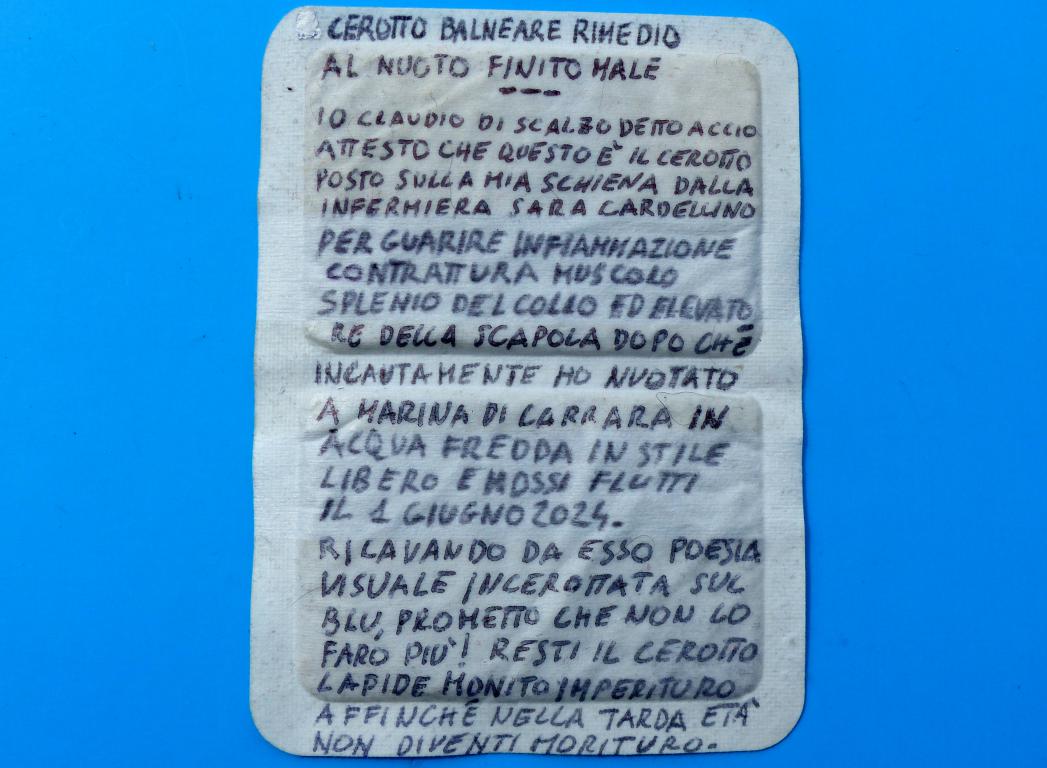 CEROTTO BALNEARE RIMEDIO
AL NUOTO FINITO MALE
---
IO CLAUDIO DI SCALZO DETTO ACCIO
ATTESTO CHE QUESTO E' IL CEROTTO
POSTO SULLA MIA SCHIENA DALLA
INFERMIERA SARA CARDELLINO
PER GUARIRE INFIAMMAZIONE
CONTRATTURA MUSCOLO
SPLENIO DEL COLLO ED ELEVATO
RE DELLA SCAPOLA DOPO CHE
INCAUTAMENTE HO NUOTATO
A MARINA DI CARRARA IN
ACQUA FREDDA IN STILE
LIBERO E MOSSI FLUTTI
IL 1 GIUGNO 2024.
RICAVANDO DA ESSO POESIA
VISUALE INCEROTTATA SUL
BLU, PROMETTO CHE NON LO
FARÒ PIU'! RESTI IL CEROTTO
LAPIDE MONITO IMPERITURO
AFFINCHÉ NELLA TARDA ETA'
NON DIVENTI MORITURO.